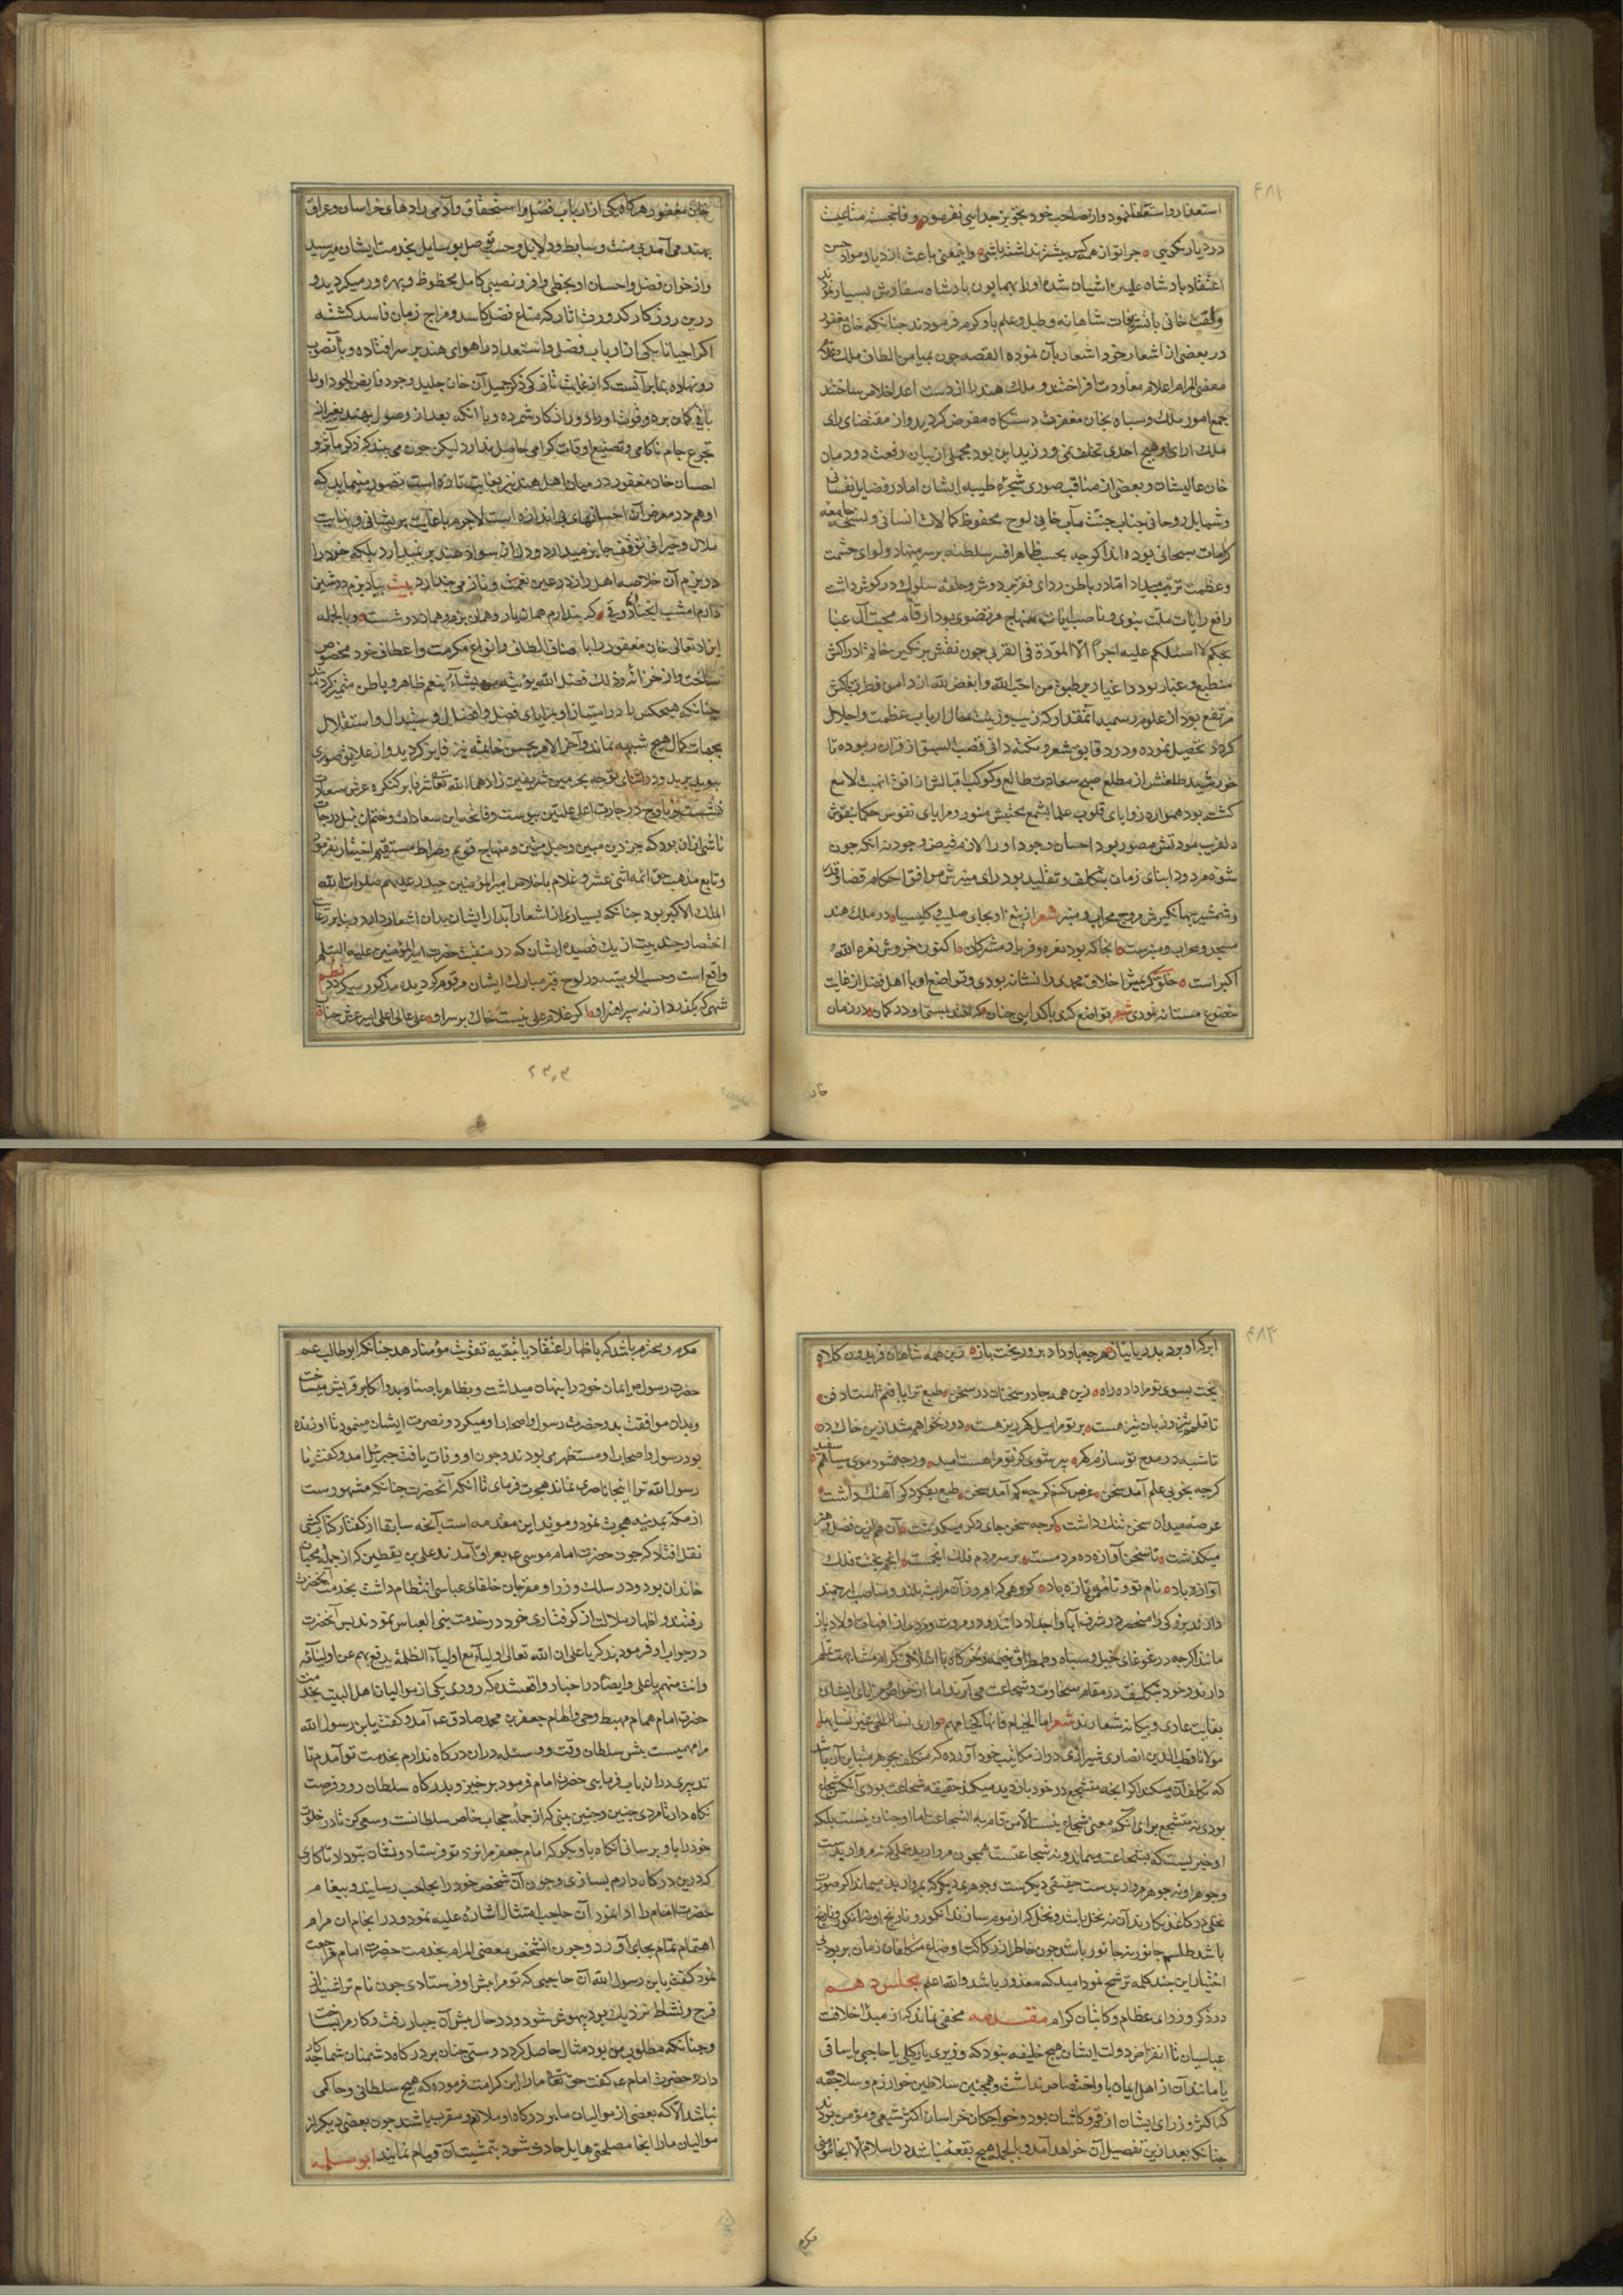 استعذار و استعفا نمود و از صاحب خود تجویز جدایی نفرمود
در دیار بیکسی جرا تو از همه کس بیشتر نداشته باشی و اینمعنی باعث ازدیاد مواد حسن
اعتقاد بادشاه علیین اشیان شده او را بهمایون بادشاه سفارش بسیار نمودند
خانی با تشریفات شاهانه و طبل و علم باو کرم فرمودند جنانکه خان مغفور
در بعضی از اشعار خود اشعار بآن نموده القصه جون بمیامن الطاف
مقضی المرام اعلام معاودت افراختند و ملک هند را از دست اعدا خلاص ساختند
جمع امور ملک و سپاه بخان مغفرت دستکاه مفوض کردید و از مقتضای رای
ملک ارای او هیچ احدی تخلف نمی ورزید این بود مجملی از بیان رفعت دودمان
خان عالیشان و بعضی از مناقب صوری شجره طیبه ایشان اما در فضایل نفسانی
و شمایل روحانی جناب جنت مآب خانی لوح محفوظ کمالات انسانی و نسخه جامعه
کرامات سبحانی بوده اند اکرجه بحسب ظاهر افسر سلطنه بر سر مینهاد و لوای حشمت
و عظمت ترتیب میداد اما در باطن ردای فقر بر دوش و حلقه سلوک در کوش داشت
رافع رایات ملت نبوی و ناصب ایات منهاج مرتضوی بود ارقام محبت آل عبا
بحکم لا اسئلکم علیه اجرا الا المودة فی القربی جون نقش بر نکین خاتم ادراکش
منطبع و غبار بود داغیار بر طبق من احب الله و ابغض لله از دامن فطرت پاکش
مرتفع بود از علوم رسمیه آنمقدار که زیب و زینت مقال ارباب عظمت و اجلال
کردد تحصیل نموده و در دقایق شعر و نکته دانی قصب السبق از اقران ربوده تا
خورشید طلعتش از مطلع صبح سعادت طالع و کوکب اقبالش از افق ابهت لامع
کشته بود همواره زوایای قلوب علما بشمع محبتش منور و مرایای نفوس حکما بنقوش
دلفریب مودتش مصور بود احسان وجود او را لازمه فیض وجود نه آنکه جون
شیوه مرد و دابنای زمان بتکلف و تقلید بود رای منیرش موافق احکام قضا و قدر
و شمشیر جهانکیرش مروج محراب و منبر شعر از تیغ او بجای صلیب و کلیسیا در ملک هند
مسجد و محراب و منبرست آنجا که بود نعره و فریاد مشرکان اکنون خروش نعره الله
اکبر است خلق کریمش اخلاق محمدی را نشانه بودی و تواضع او با اهل فضل از غایت
خضوع مستانه نمودی شعر تواضع کن باکدایی جنان که افتد ببستی او در کمان در زمان
خان مغفور هرکاه یکی از ارباب فضل و استحقاق وآدمی زادهای خراسان و عراق
بهند می آمد بی منت وسایط و دلایل و حسب توصل بوسایل بخدمت ایشان میرسید
و از خوان فضل و احسان او بحظی وافر و نصیبی کامل محظوظ و بهره ور میکردید و
درین روزکار کدورت اثار که متاع فضل کاسد و مزاج زمان فاسد کشته
اکر احیانا یکی از ارباب فضل و استعداد را هوای هند بر سر افتاده و بآنصوب
رو نهاده بنابرآنست که از غایت شادی ذکر جمیل آن خان جلیل وجود فایض الجود او را
باقی کمان برده و فوت او را دور از کار شمرده و با آنکه بعد از وصول بهند بغیر از
تجرع جام ناکامی و تضییع اوقات کرامی حاصلی ندارد لیکن جون می بیند که ذکر مآثر و
احسان خان مغفور در میان اهل هند نیز بغایت تازه است تصور مینماید که
او هم در معرض آن احسانهای بی اندازه است لاجرم با غایت پریشانی و نهایت
ملال و حیرانی توقف جایز میدارد و دل از سواد هند بر نمیدارد بلکه خود را
در بزم آن خلاصه اهل راز در عین نعمت و ناز می پندارد بیت بیاد بزم دوشین
دارم امشب آنچنان ذوقی که پندارم همان یار و همان بزم و همان دوشست و بالجمله
ایزد تعالی خان مغفور را با صناف الطاف و انواع مکرمت و اعطاف خود مخصوص
ساخت و از خزانه و ذلک فضل الله یؤتیه من یشآء بنعم ظاهر و باطن متمیز کردانید
چنانکه هیچکس را در امتیاز او بمزایای فضل و افضال و استقلال
بجهات کمال هیچ شبهه نماند و آخر الامر بحسن خاتمت نیز فایز کردید و از علایق صوری
ببرید و در اثنای توجه بحرمین شریفین زادهما الله تعالی شرفا بر کنکره عرش سعادت
نشست و باوج درجات اعلی علیین پیوست و فاتحه این سعادات و ختم ان بنیل درجات
ناشی از ان بود که جز دین مبین و حبل متین و منهاج قویم و صراط مستقیم اختیار نفرمود
و تابع مذهب حق ائمه اثنی عشر و غلام باخلاص امیر المؤمنین حیدر علیهم صلوات الله
الملک الاکبر بود جنانکه بسیاری از اشعار آبدار ایشان بدان اشعار دارد و بنابر رعایت
اختصار چند بیت از یک قصیده ایشان که در منقبت حضرت امیر المؤمنین علیه السلم
واقع است و حسب الوصیة در لوح قبر مبارک ایشان مرقوم کردیده مذکور میکردد نظم
شهی که بکذرد از نه سپهر افسر او اکر غلام علی نیست خاک بر سر او علی عالی اعلی امیر عرش جناب
ابر کر او برد بدریا نیاز هرچه باو داد برو ریخت باز زین همه شاهان فریدون کلاه
بخت بسوی تو مرا داده راه زین همه جادو سخنان در سخن طبع ترا یافتم استاد فن
تا قلم تیز و زبان تیز هست بر تو مرا میل کهر ریز هست دور نخواهم شد ازین خاک در
تا شبه در مدح تو سازم کهر پیر شوی کز تو مرا هست امید ورچه شود موی سیاهم سفید
کرچه بخوبی علم آمد سخن عرض کنم کرچه کم آمد سخن طبع
عرصه میدان سخن تنک داشت کرچه سخن جای دکر میکذشت آن هم ازین فضل و هنر
میکذشت تا سخن آوازه ده مردمست بر سر مردم فلک انجمست انجم بخت فلک
اوازه باد نام تو و نامه من تازه باد کروهی که امروز آن مراتب بلند و مناصب ارجمند
دارند بزرکی را منحصر در شرف آبا و اجداد دانند و در مروت و مردی
مانند اکرجه در غوغای خیل و سپاه و طمطراق خیمه و خرکاه با اسلاف کرام مشابهت تمام
دارند و خود را بتکلیف در مقام سخاوت و شجاعت می آرند اما از خواص و مزایای ایشان
بغایت عاری و بیکانه شعارند شعر اما الخیام فانها کخیامهم و اری نساء الحی غیر نسایها
مولانا قطب الدین انصاری شیرازی در از مکاتیب خود آورده که متکلف بجوهر مباین آن باشد
که تکلف آن میکند اکر انچه متشجع در خود باز دید میکند حقیقه شجاعت بودی آنکس شجاع
بودی نه متشجع برای آنکه معنی شجاع نیست الا من قام به الشجاعة اما او جنان نیست بلکه
او خبریست که بشجاعت میماند و نه شجاعتست همچون مروارید عملی که نه مرواریدست
و جوهر او نه جوهر مرواریدست حقیقتی دیکرست و جوهری دیکر که بمروارید میماند اکر صورت
نخلی در کاغذ نکارند آن نه نخل باشد و نخلی که از موم سازند انکور و نارنج او نه انکور و نارنج
باشد طلسم جانور نه جانور باشد جون خاطر از رکاکت اوضاع متکلفان زمان پر بود بی
اختیار این چند کلمه ترشح نمود امید که معذور باشد والله اعلم مجلس دهم
در ذکر وزرای عظام و کاتبان کرام مقدمه مخفی نماند که از مبدأ خلافت
عباسیان تا انقراض دولت ایشان هیچ خلیفه نبود که وزیری یا وکیلی یا حاجبی یا ساقی
یا مانند آن از اهل ایمان باو اختصاص نداشت و همچنین سلاطین خوارزم و سلاجقه
که اکثر وزرای ایشان از قم و کاشان بود و خواجکان خراسان اکثر شیعی و مؤمن بودند
جنانکه بعد ازین تفصیل آن خواهد آمد و بالجمله هیچ بقعه نباشد در اسلام الا آنجا مؤمنی
مکرم و محترم باشد که باظهار اعتقاد یا بتقیه تقویت مؤمنان دهد جنانکه ابوطالب عم
حضرت رسول مر ایمان خود را پنهان میداشت و بظاهر با صنادید و اکابر قریش میساخت
و بدان موافقت بد و حضرت رسول و اصحاب او میکرد و نصرت ایشان مینمود تا او زنده
بود رسول و اصحاب او مستظهر می بودند و جون او وفات یافت جبرئیل آمد و کفت یا
رسول الله ترا اینجا ناصری نماند هجرت فرمای تا آنکه آنحضرت جنانکه مشهورست
از مکه بمدینه هجرت نمود و موید این مقدمه است آنجه سابقا از کفتار کتاب کشی
نقل افتاد که جون حضرت امام موسی ع بعراق آمدند علی بن یقطین که از جمله محبان
خاندان بود و در سلک وزرا و مقربان خلفای عباسی انتظام داشت بخدمت آنحضرت
رفتند و اظهار ملالت از کرفتاری خود در خدمت بنی العباس نمودند پس آنحضرت
در جواب او فرمودند که یا علی ان الله تعالی اولیآء مع اولیآء الظلمة یدفع بهم عن اولیآئه
و انت منهم یا علی و ایضا در اخبار واقعشده که روزی یکی از موالیان اهل البیت بخدمت
حضرت امام همام مهبط وحی و الهام جعفر بن محمد صادق ع آمد و کفت یا بن رسول الله
مرا مهمیست پیش سلطان وقت و وسیله در ان درکاه ندارم بخدمت تو آمدم تا
تدبیری دران باب فرمایی حضرت امام فرمود برخیز و بدرکاه سلطان رو و فرصت
نکاه دار تا مردی جنین و جنین بینی که از جمله حجاب خاص سلطانست و سعی کن تا در خلوت
خود را باو برسانی آنکاه باو بکو که امام جعفر مرا نزد تو فرستاد و نشان بتو داد تا کاری
که درین درکاه دارم بسازی و جون آن شخص خود را بحاجب رسانید و پیغام
حضرت امام را ادا نمود آن حاجب امتثال اشاره علیه نمود و در انجام ان مرام
اهتمام تمام بجای آورد و جون آنشخص مقضی المرام بخدمت حضرت امام مراجعت
نمود کفت یا بن رسول الله آن حاجبی که تو مرا پیش او فرستادی جون نام تو شنید از
فرح و نشاط نزدیک بود بیهوش شود و در حال پیش آن جبار رفت و کار مرا بساخت
و جنانکه مطلوب من بود مثال حاصل کرد دوستی جنان بر درکاه دشمنان شما جه کار
دارد حضرت امام ع کفت حق تعالی مارا این کرامت فرموده که هیچ سلطانی و حاکمی
نباشد الا که بعضی از موالیان ما بر درکاه او ملازم و مقرب باشند جون بعضی دیکر از
موالیان مارا آنجا مصلحتی هایل حادث شود بتمشیت آن قیام نمایند ابو سلمه